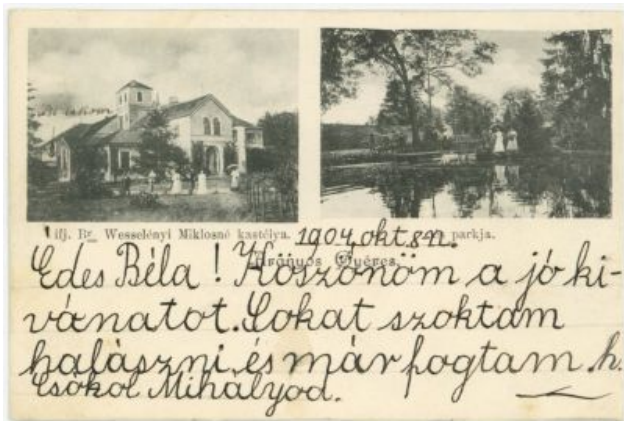 ifj. Br. Wesselényi Miklosné kastélya. 1904 okt 8n. parkja.
Aranyos Gyéres.
Édes Béla! Köszönöm a jó ki-
vánatot. Sokat szoktam
halászni és már fogtam. h.
Csókol Mihályod.